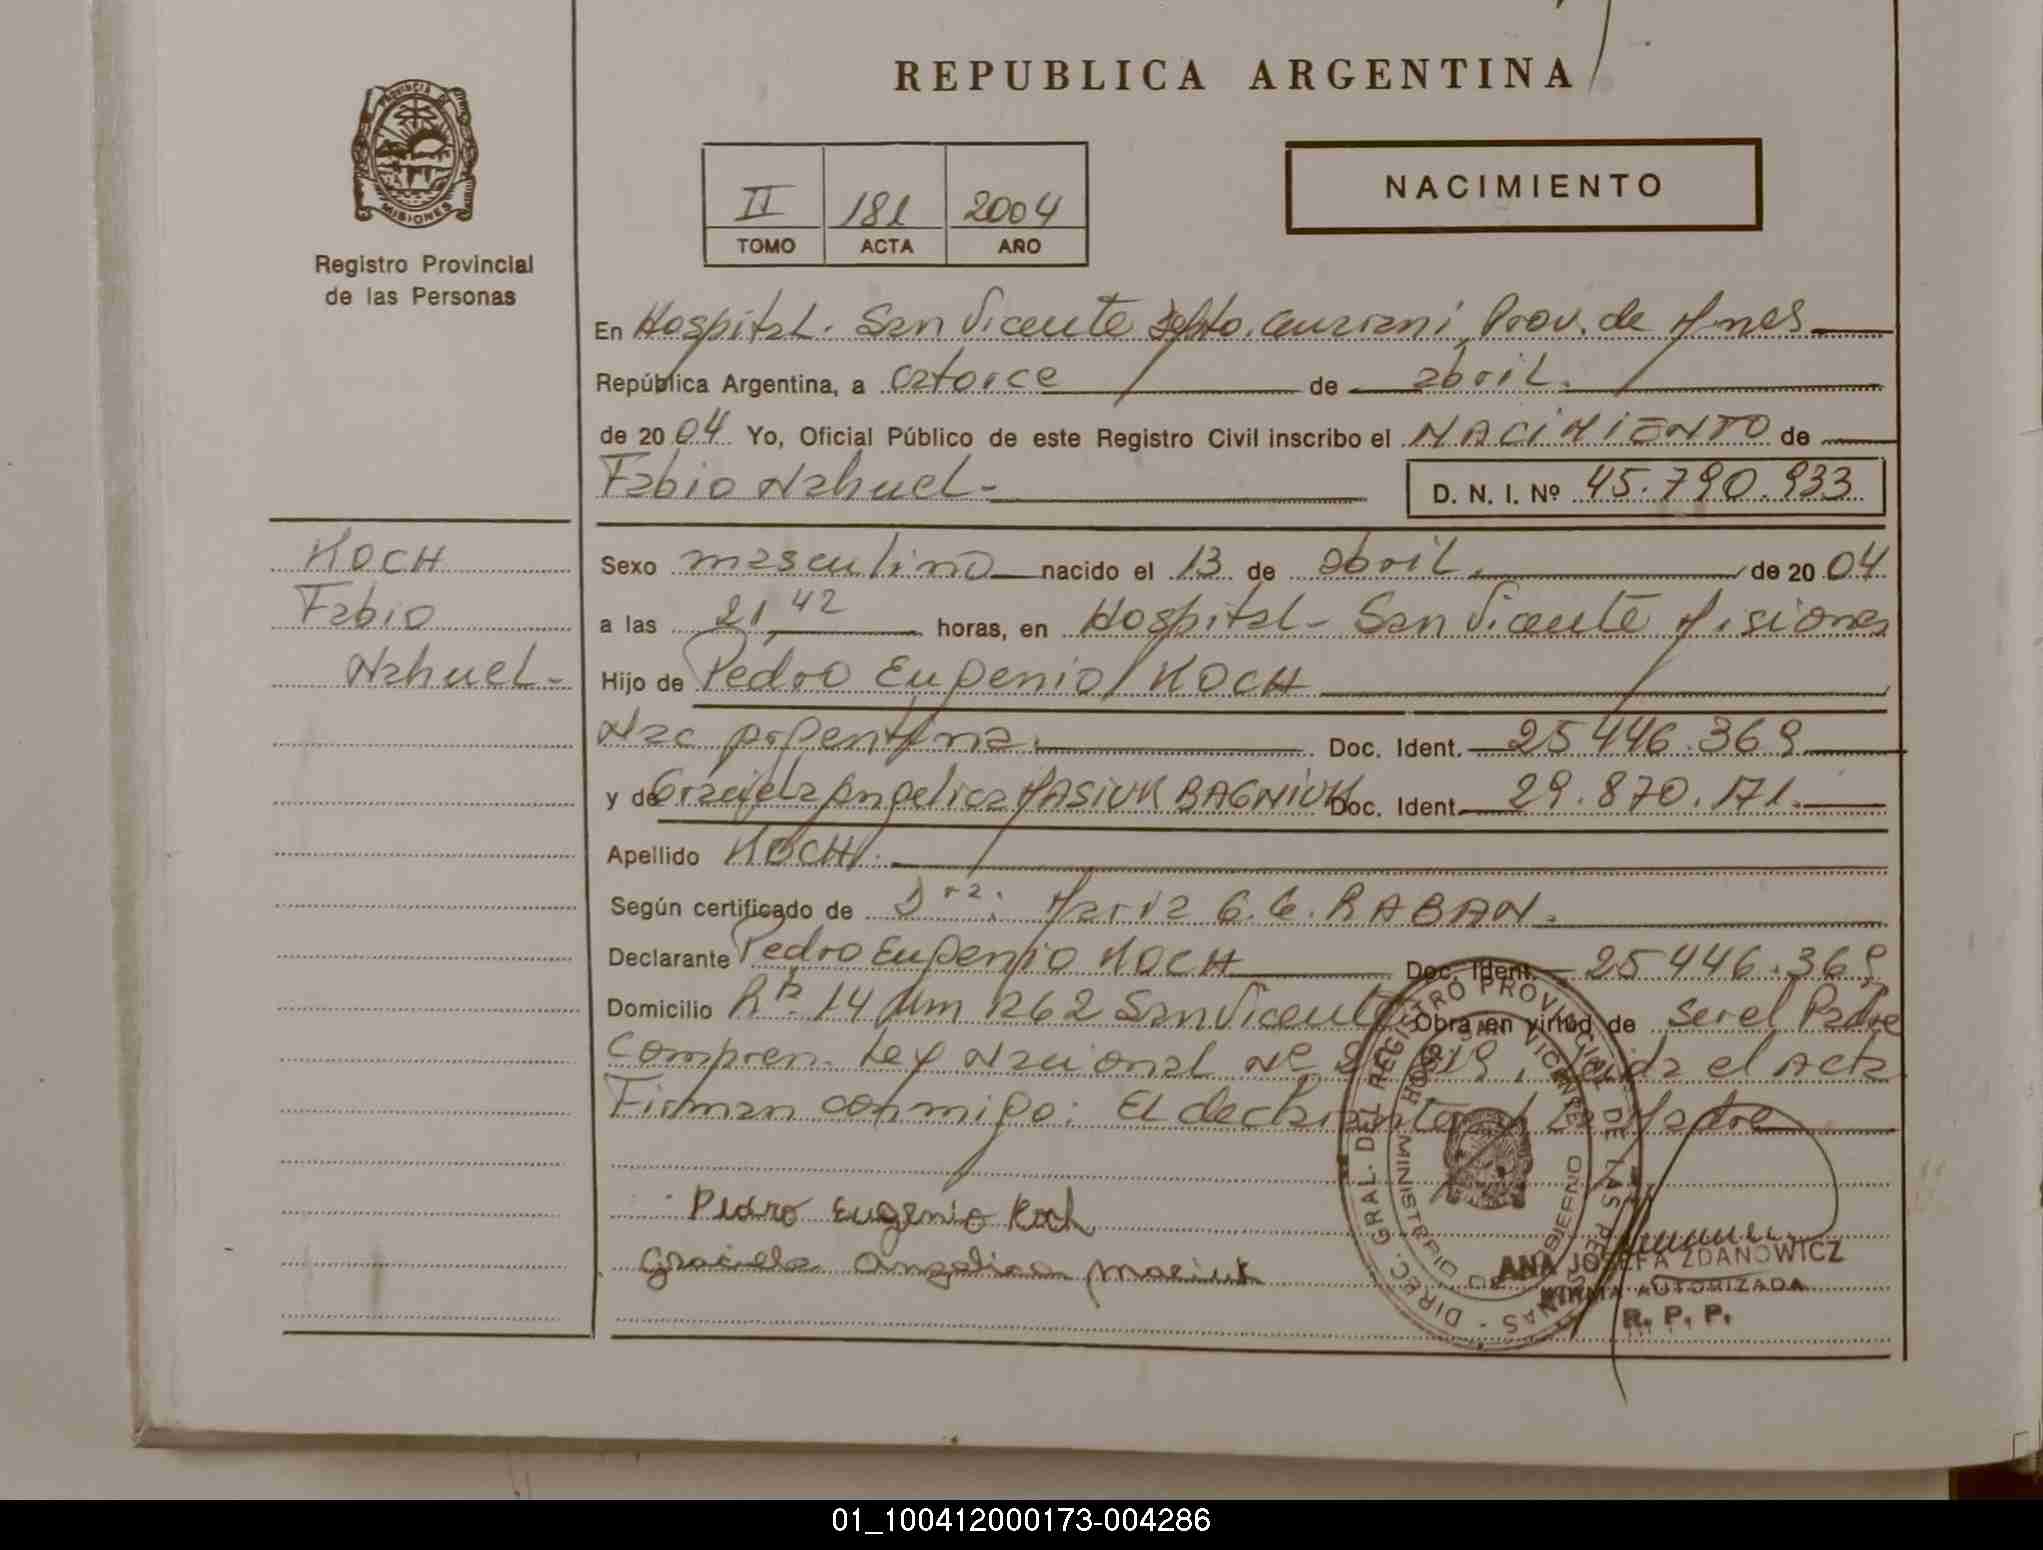 REPUBLICA ARGENTINA
PROVINCIA DE
MISIONES
Registro Provincial
de las Personas
II 181 2004
TOMO ACTA AÑO
NACIMIENTO
En Hospital. San Vicente Dpto. Guaraní, Prov. de Mnes
República Argentina, a catorce de abril.
de 2004 Yo, Oficial Público de este Registro Civil inscribo el NACIMIENTO de
Fabio Nahuel-
D. N. I. Nº 45.790.933
KOCH
Fabio
Nahuel-
Sexo masculino nacido el 13 de abril. de 2004
a las 21,42 horas, en Hospital- San Vicente Misiones
Hijo de Pedro Eugenio KOCH
Nac argentina. Doc. Ident. 25446.369
y de Graciela Angelica MASIUK BAGNIUK Doc. Ident. 29.870.171.
Apellido KOCH.
Según certificado de Dra: Maria G. G. RABAN.
Declarante Pedro Eugenio KOCH Doc. Ident. 25446.369
Domicilio Rta. 14 Km 1262 San Vicente Obra en virtud de ser el Padre
Compren. Ley Nacional Nº Leida el Acta
Firman conmigo: El declarante y La Madre
Pedro Eugenio Koch
Graciela Angelica Masiuk
DIREC. GRAL. DEL REGISTRO PROVINCIAL DE LAS PERSONAS
HOSP. SAN VICENTE
MINISTERIO DE GOBIERNO
ANA JOSEFA ZDANOWICZ
FIRMA AUTORIZADA
R. P. P.
01_100412000173-004286